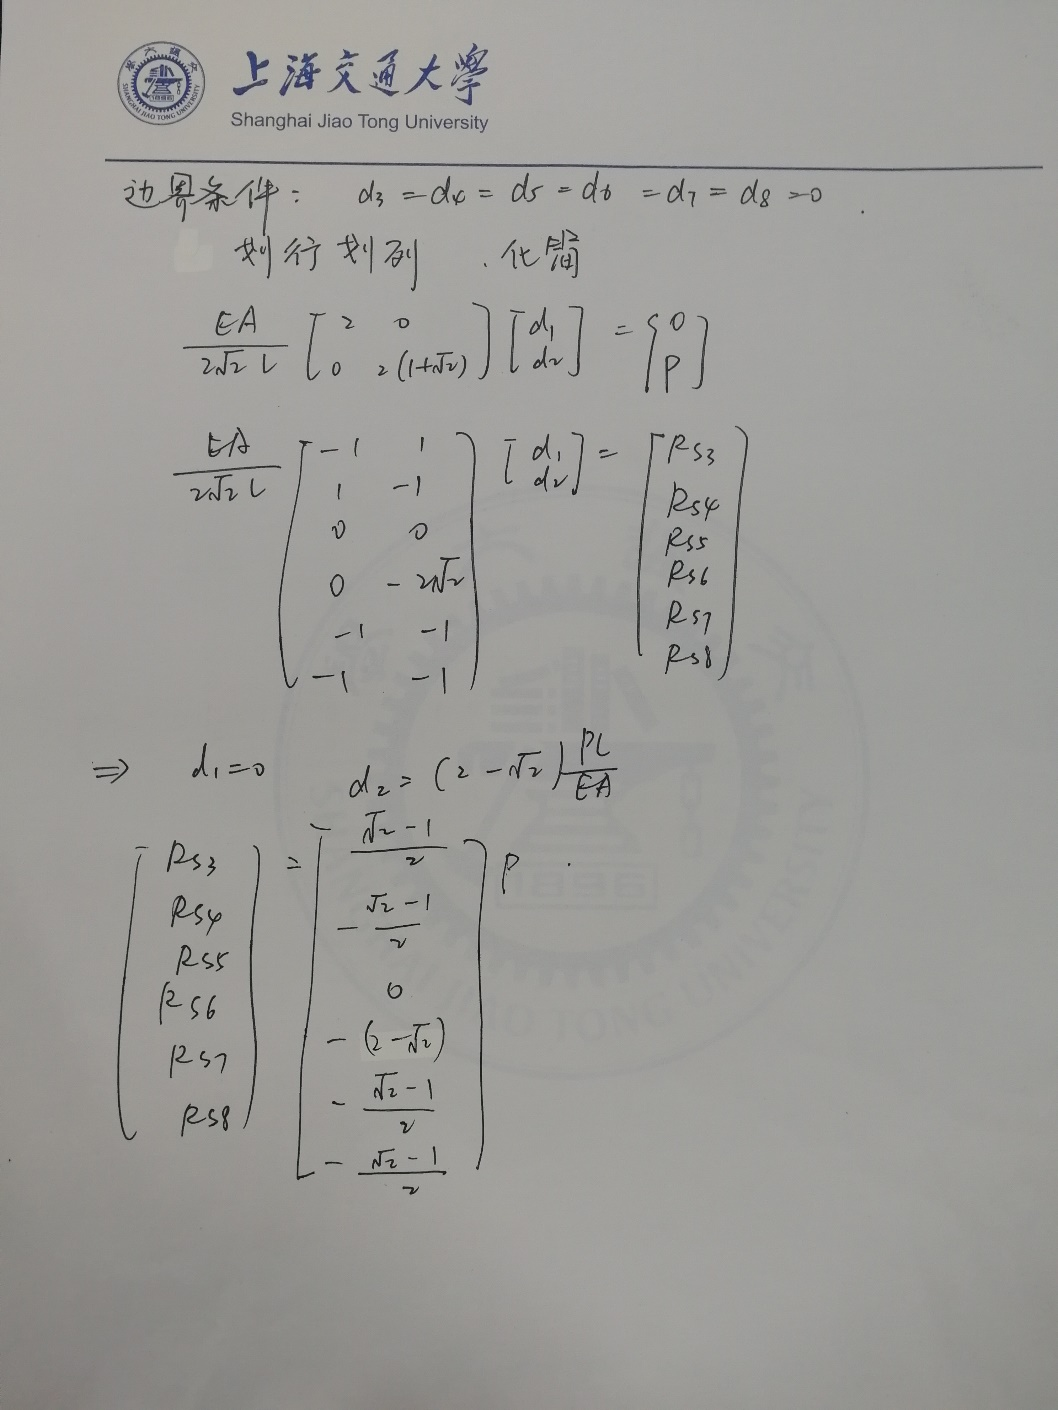 上海交通大學
Shanghai Jiao Tong University
边界条件: d3 = d4 = d5 = d6 = d7 = d8 = 0 .
划行划列 . 化简
EA/(2√2 L) [2 0; 0 2(1+√2)] [d1; d2] = {0; P]
EA/(2√2 L) [-1 1; 1 -1; 0 0; 0 -2√2; -1 -1; -1 -1] [d1; d2] = [Rs3; Rs4; Rs5; Rs6; Rs7; Rs8]
⇒ d1=0 d2 = (2-√2) PL/EA
[Rs3; Rs4; Rs5; Rs6; Rs7; Rs8] = [(√2-1)/2; -(√2-1)/2; 0; -(2-√2); -(√2-1)/2; -(√2-1)/2] P